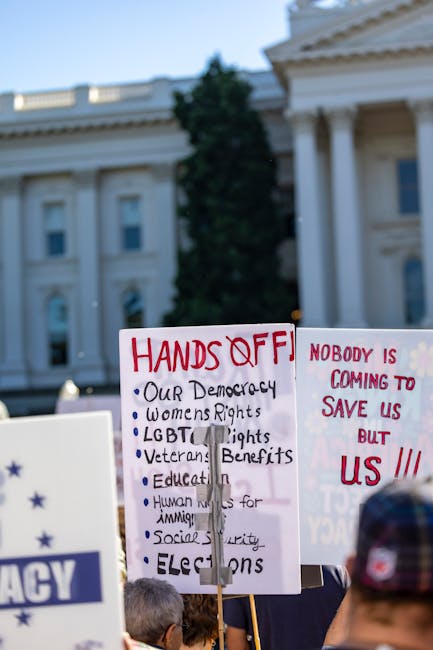 HANDS OFF!
• Our Democracy
• Womens Rights
• LGBT Rights
• Veterans Benefits
• Education
• Human Rights for
• Social Security
• Elections
NOBODY IS
COMING TO
SAVE US
BUT
US!!!
ACY